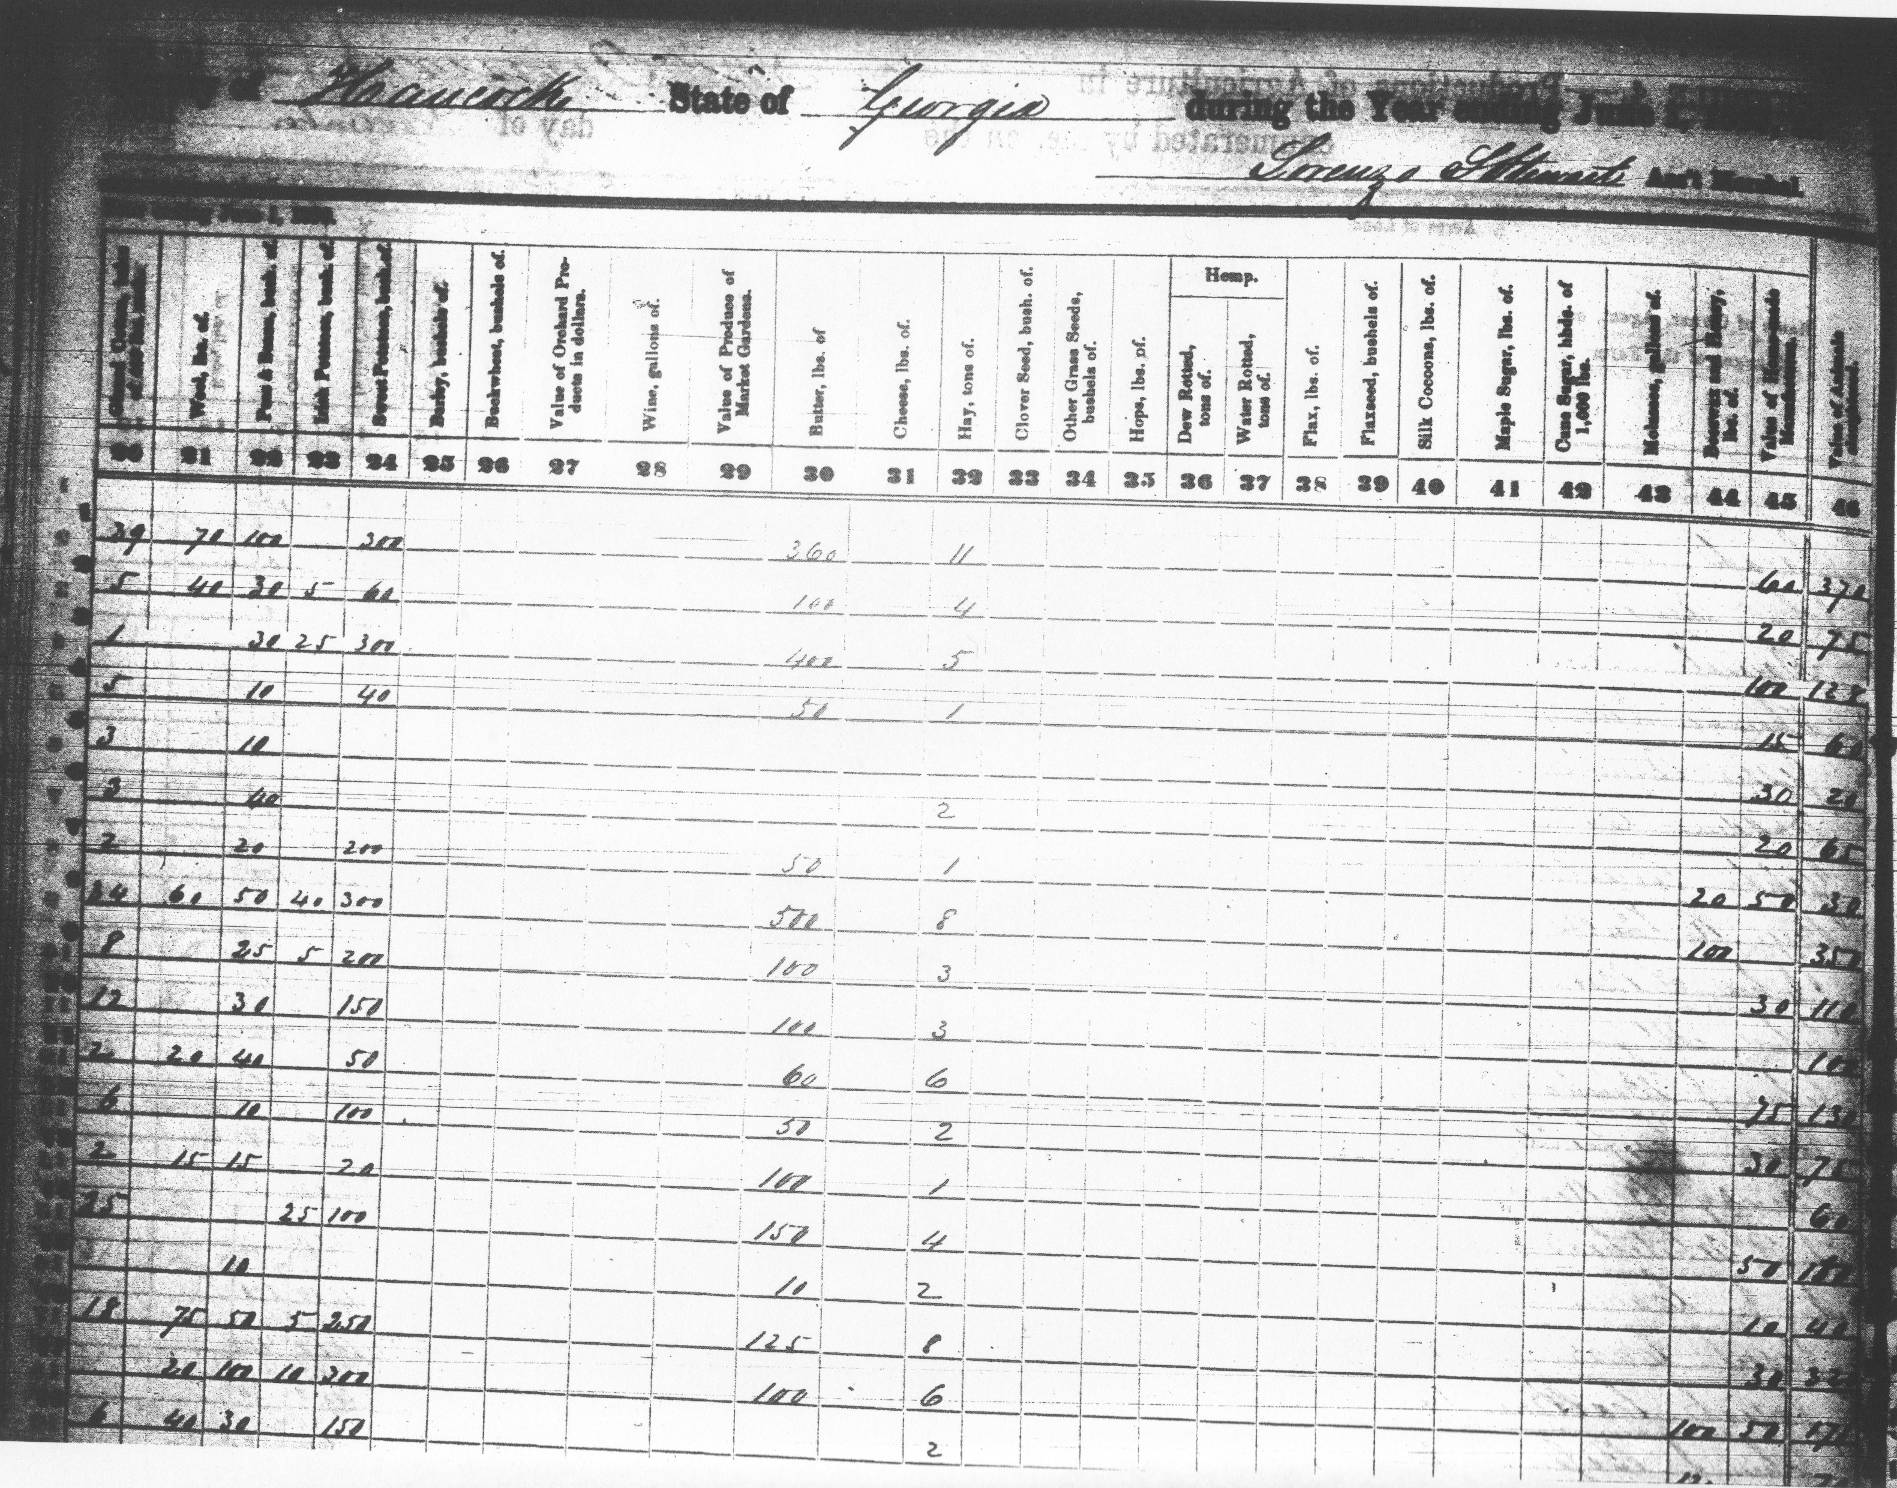 of Hancock State of Georgia during the Year ending June 1,
Lorenzo Ass't Marshal.
June 1,
Hemp.
Ginned Cotton, bales of 400 lbs. each. Wool, lbs. of. Peas & Beans, bush. of. Irish Potatoes, bush. of. Sweet Potatoes, bush. of. Barley, bushels of. Buckwheat, bushels of. Value of Orchard Products in dollars. Wine, gallons of. Value of Produce of Market Gardens. Butter, lbs. of Cheese, lbs. of. Hay, tons of. Clover Seed, bush. of. Other Grass Seeds, bushels of. Hops, lbs. of. Dew Rotted, tons of. Water Rotted, tons of. Flax, lbs. of. Flaxseed, bushels of. Silk Cocoons, lbs. of. Maple Sugar, lbs. of. Cane Sugar, hhds. of 1,000 lbs. Molasses, gallons of. Beeswax and Honey, lbs. of. Value of Home-made Manufactures. Value of Animals slaughtered.
20 21 22 23 24 25 26 27 28 29 30 31 32 33 34 35 36 37 38 39 40 41 42 43 44 45 46
39 70 100 300 360 11 60 370
5 40 30 5 60 100 4 20 75
1 30 25 300 400 5 100 128
5 10 40 50 1 15 60
3 10 30 20
3 40 2 20 65
2 20 200 50 1 20 50 30
24 60 50 40 300 500 8 100 350
8 25 5 200 100 3 30 110
12 30 150 100 3 100
2 20 40 50 60 6 75 130
6 10 100 50 2 30 75
2 15 15 20 100 1 60
25 25 100 150 4 50 180
10 10 2 10 40
18 75 50 5 250 125 8 30
20 100 10 300 100 6 100 50
6 40 30 150 2